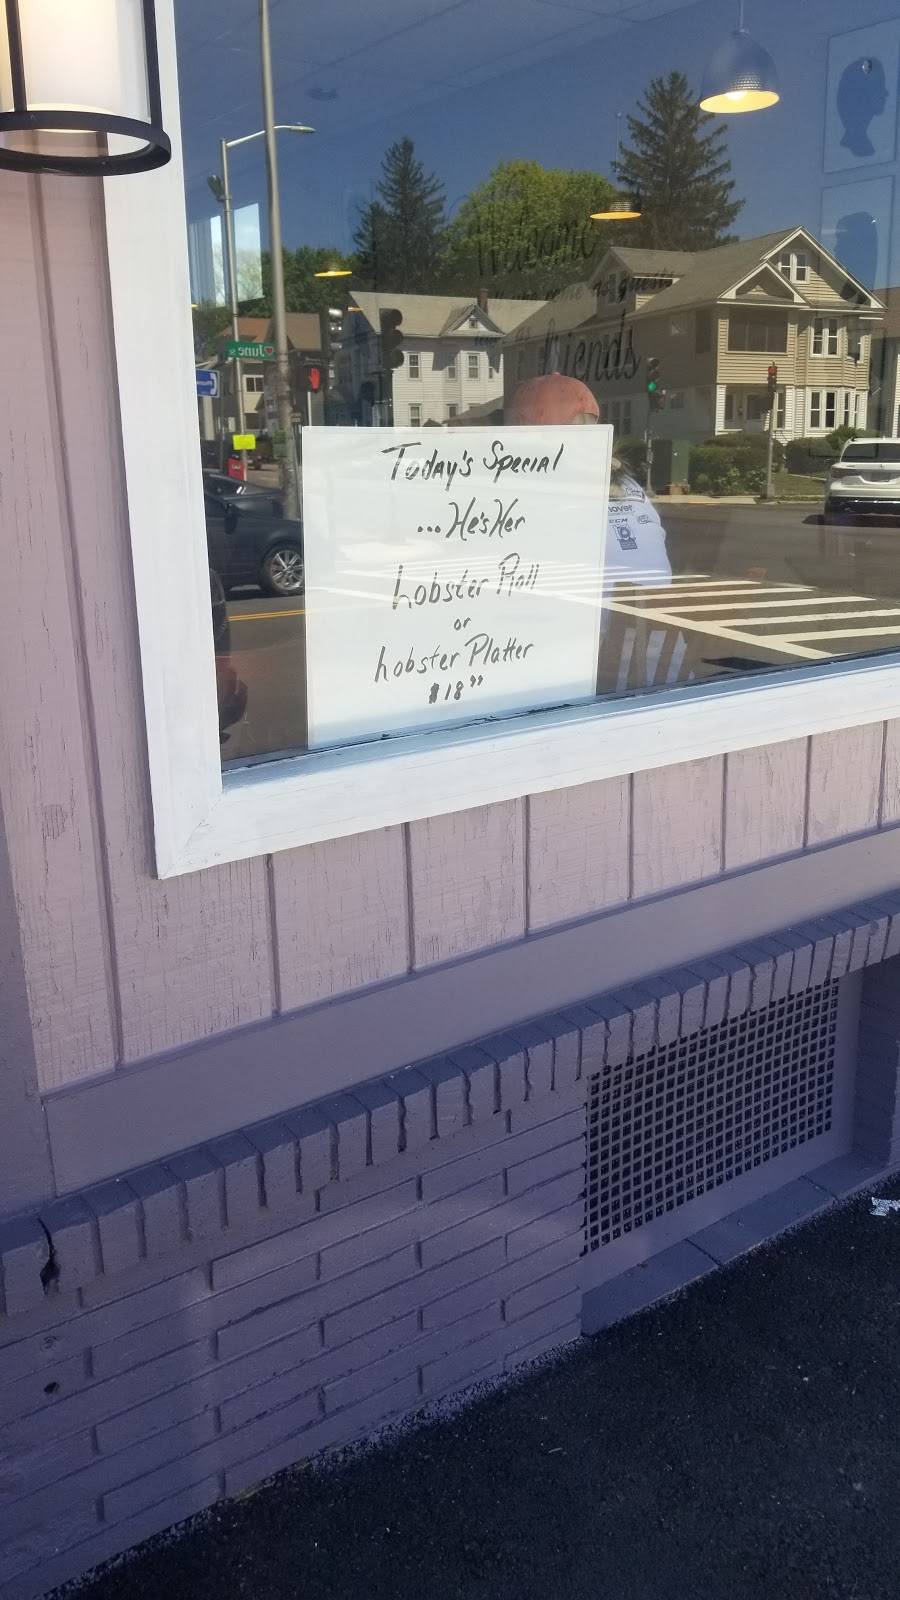 Today's Special
...He'sHer
Lobster Roll
or
Lobster Platter
$18⁹⁹
Welcome
as guests
friends
June St
CCM